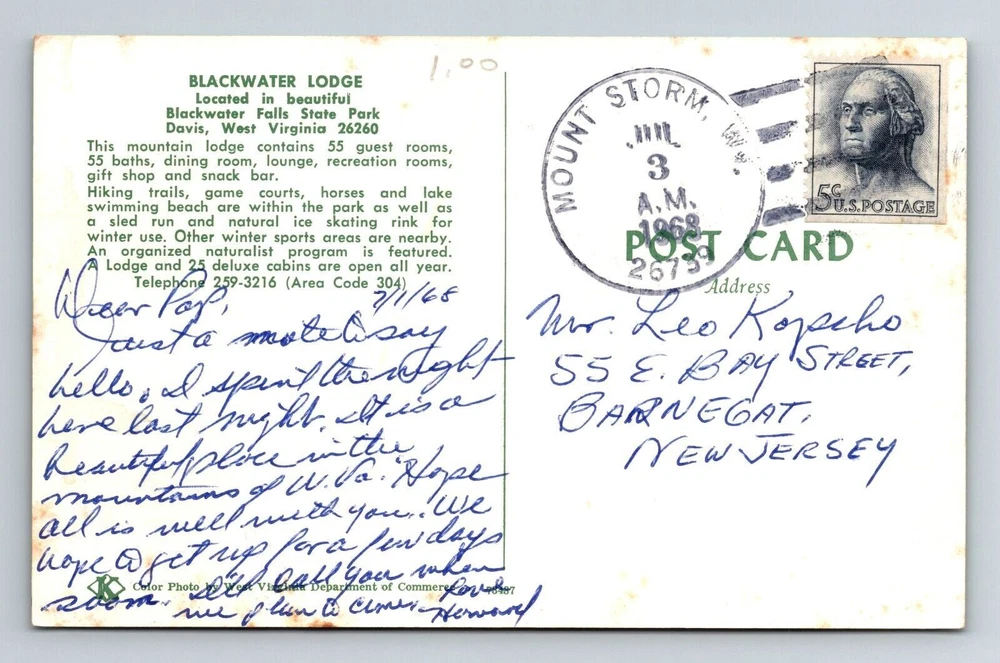 1.00
BLACKWATER LODGE
Located in beautiful
Blackwater Falls State Park
Davis, West Virginia 26260
This mountain lodge contains 55 guest rooms,
55 baths, dining room, lounge, recreation rooms,
gift shop and snack bar.
Hiking trails, game courts, horses and lake
swimming beach are within the park as well as
a sled run and natural ice skating rink for
winter use. Other winter sports areas are nearby.
An organized naturalist program is featured.
A Lodge and 25 deluxe cabins are open all year.
Telephone 259-3216 (Area Code 304)
Dear Pop, 7/1/68
Just a note to say
hello. I spent the night
here last night. It is a
beautiful place in the
mountains of W. Va. Hope
all is well with you. We
hope to get up for a few days
soon. I'll call you when
we plan to come. Love
Howard
K
Color Photo by West Virginia Department of Commerce
MOUNT STORM, W.
JUL
3
A.M.
1968
26739
5c
U.S. POSTAGE
POST CARD
Address
Mr. Leo Kopscho
55 E. BAY STREET,
BARNEGAT,
NEW JERSEY